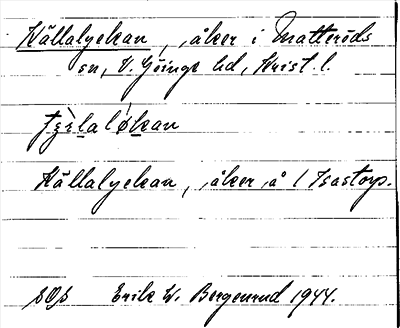 Källalyckan, åker i Matteröds
sn, V. Göinge hd, Krist. l.
Källalyckan, åker å 1 Isastorp.
SOS Erik W. Bergenrud 1944.